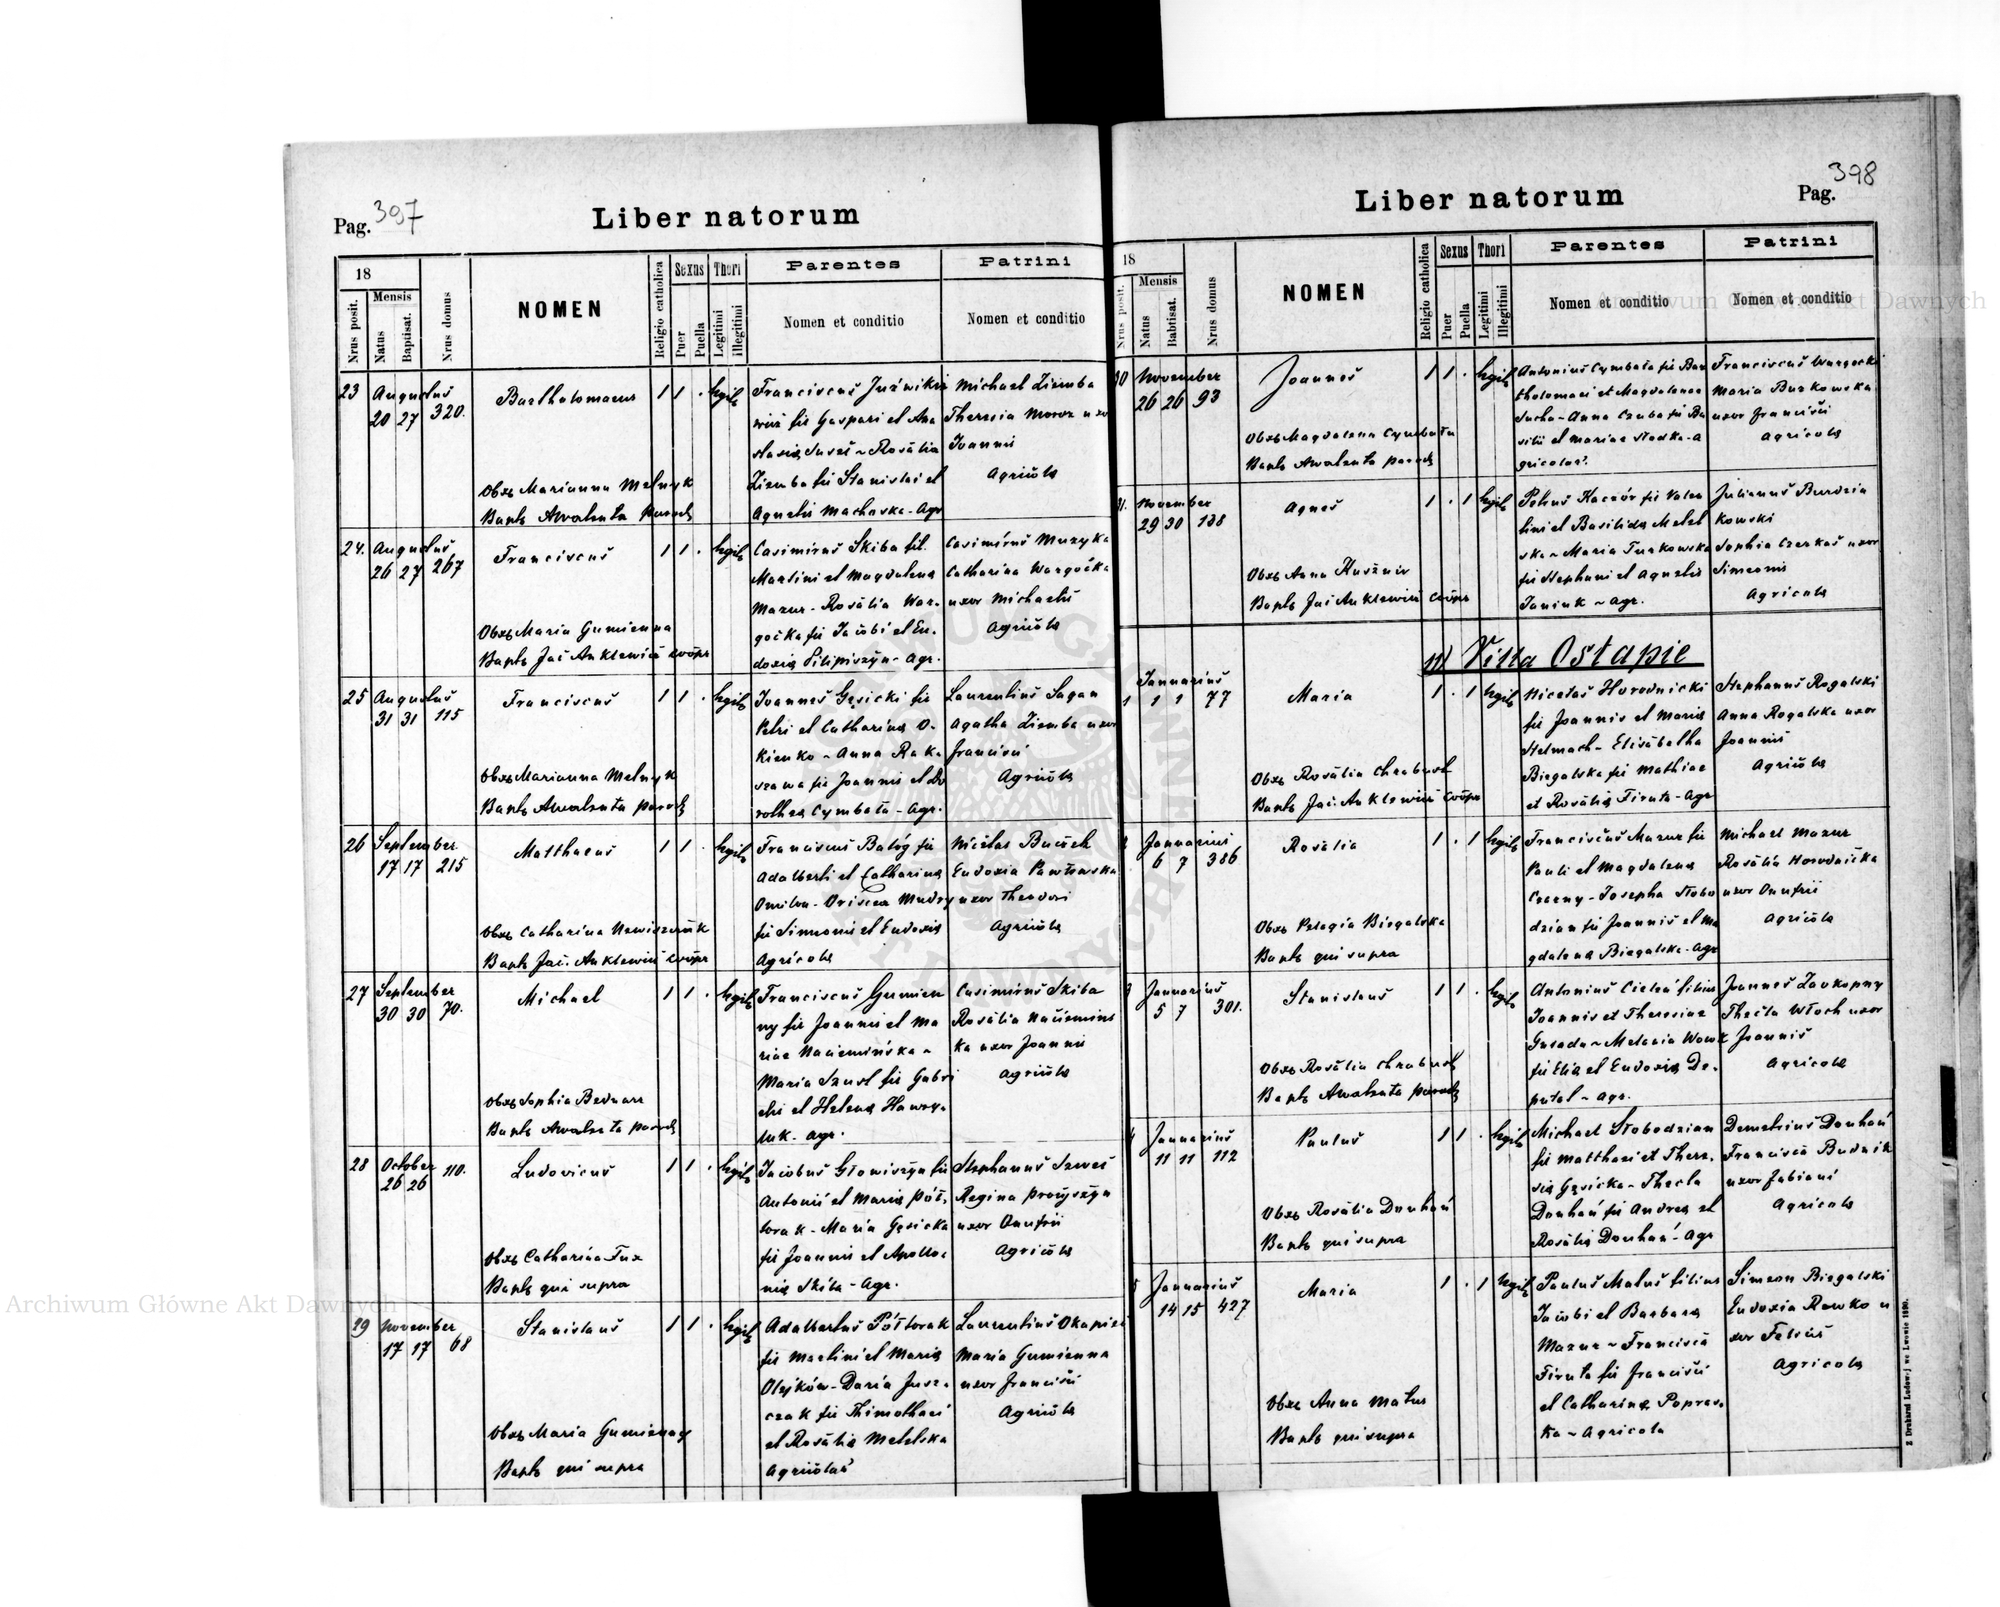 Pag. 397
Liber natorum
18
Nrus posit.
Mensis
Natus
Baptisat.
Nrus domus
NOMEN
Religio catholica
Sexus
Puer
Puella
Thori
Legitimi
illegitimi
Parentes
Nomen et conditio
Patrini
Nomen et conditio
23 Augustus
20 27 320.
Bartholomaeus
1 1 .
Obx Marianna Melnyk
Bapt
Franciscus
fil Gaspari et Ana
Rosalia
Ziemba fil Stanislai et
Agnetis Machoska - Agr
Michael Ziemba
Theresia Moroz uxor
Joannis
Agricolae
24. Augustus
26 27 267
Franciscus
1 1 .
Obx Maria Gumienna
Bapt Jac Anklewicz coopr
Casimirus Skiba fil.
Martini et Magdalena
Mazur - Rosalia War-
gocka fil Jacobi et Eu-
doxia Pilipiszyn - Agr.
Casimirus Muzyka
Catharina Wargocka
uxor Michaelis
Agricolae
25 Augustus
31 31 115
Franciscus
1 1 .
Obx Marianna Melnyk
Bapt
Joannes Gęsicki fil
Petri et Catharina O-
kienko - Anna Rak-
szawa fil Joannis et Do
rothea Cymbała - Agr.
Laurentius Sagan
Agatha Ziemba uxor
Francisci
Agricolae
26 September
17 17 215
Matthaeus
1 1 .
Obx Catharina
Bapt Jac. Anklewicz coopr
Franciscus Balóg fil
Adalberti et Catharina
Mudry
fil Simeonis et Eudoxia
Agricolae
Nicolas
Eudoxia Pawłowska
uxor Theodori
Agricolae
27 September
30 30 70.
Michael
1 1 .
Obx Sophia Bednarz
Bapt
Franciscus Gumien
ny fil Joannis et Ma
riae Naciemińska -
Maria Szust fil Gabri
elis et Helena Hawry-
luk - Agr.
Casimirus Skiba
Rosalia Naciemins
ka uxor Joannis
Agricolae
28 October
26 26 110.
Ludovicus
1 1 .
Obx Catharina Tux
Bapt qui supra
Jacobus Głowiszyn fil
Antonii et Maria Pół-
torak - Maria Gęsicka
fil Joannis et Apollo-
nia Skiba - Agr.
Stephanus Szwes
Regina Procyszyn
uxor Onufrii
Agricolae
29 November
17 17 68
Stanislaus
1 1 .
Obx Maria Gumienny
Bapt qui supra
Adalbertus Półtorak
fil Martini et Maria
Olejków - Daria Jusz-
czak fil Thimothaei
et Rosalia Metelska
Agricolae
Laurentius Okapiec
Maria Gumienna
uxor Francisci
Agricolae
Pag. 398
Liber natorum
18
Nrus posit.
Mensis
Natus
Babtisat.
Nrus domus
NOMEN
Religio catholica
Sexus
Puer
Puella
Thori
Legitimi
Illegitimi
Parentes
Nomen et conditio
Patrini
Nomen et conditio
30 November
26 26 93
Joannes
1 1 .
Obx Magdalena Cymbała
Bapt
Antonius Cymbała fil Bar
tholomaei et Magdalenae
Sucha - Anna Czuba fil Ba
silii et Mariae Słodka - A
gricolae.
Franciscus Wargocki
Maria Burkowska
uxor Francisci
Agricolae
31. November
29 30 138
Agnes
1 . 1
Obx Anna Kusznir
Bapt Jac Anklewicz coopr
Petrus Kaczór fil Valen
tini et Basilida Metel
ska - Maria Turkowska
fil Stephani et Agnetis
Taniuk - Agr.
Julianus Burdzia
kowski
Sophia Czerkas uxor
Simeonis
Agricolae
Villa Ostapie
1 Januarius
1 1 77
Maria
1 . 1
Obx Rosalia Chrabust
Bapt Jac. Anklewicz coopr
Nicolaus Horodnicki
fil Joannis et Maria
Stelmach - Elisabetha
Biegalska fil Mathiae
et Rosalia Firuta - Agr
Stephanus Rogalski
Anna Rogalska uxor
Joannis
Agricolae
2 Januarius
6 7 386
Rosalia
1 . 1
Obx Pelagia Biegalska
Bapt qui supra
Franciscus Mazur fil
Pauli et Magdalena
Czarny - Josepha Słobo
dzian fil Joannis et Ma
gdalena Biegalska - Agr
Michael Mazur
Rosalia Horodnicka
uxor Onufrii
Agricolae
3 Januarius
5 7 301.
Stanislaus
1 1 .
Obx Rosalia Chrabust
Bapt
Antonius filius
Joannis et Theresiae
Melania Wowk
fil Elia et Eudoxia De-
putat - Agr.
Joannes Zawkopny
Thecla Włoch uxor
Joannis
Agricolae
4 Januarius
11 11 112
Paulus
1 1 .
Obx Rosalia Douhań
Bapt qui supra
Michael Słobodzian
fil Matthaei et There-
sia Gęsicka - Thecla
Douhań fil Andrea et
Rosalia Douhań - Agr
Demetrius Douhań
Francisca Budnik
uxor Fabiani
Agricolae
5 Januarius
14 15 427
Maria
1 . 1
Obx Anna Matus
Bapt qui supra
Paulus Matus filius
Jacobi et Barbara
Mazur - Francisca
Firuta fil Francisci
et Catharina Popraw-
ka - Agricola
Simeon Biegalski
Eudoxia Rewko u
xor Felicis
Agricolae
Z Drukarni Ludowej we Lwowie 1890.
Archiwum Główne Akt Dawnych